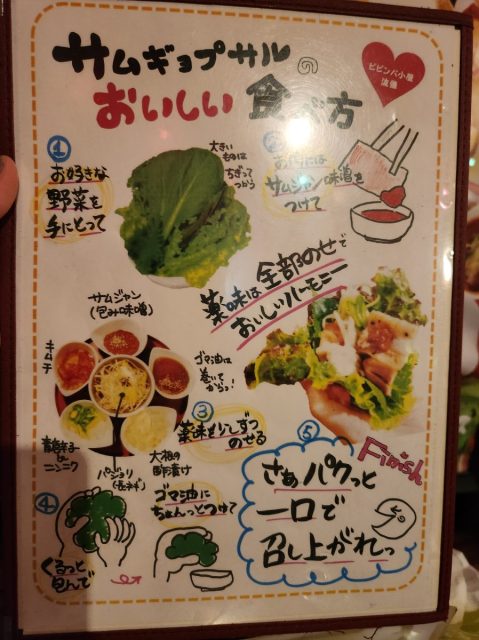 サムギョプサルの
おいしい食べ方
ビビンバ小屋
流儀
①
お好きな
野菜を
手にとって
大きい
ものは
ちぎって
つかう
②
お肉には
サムジャン味噌を
つけて
薬味は全部のせで
おいしいハーモニー
サムジャン
(包み味噌)
キムチ
ゴマ油は
巻いて
からっ!
青唐辛子
ニンニク
パジョリ
(長ネギ)
大根の
酢漬け
③
薬味少しずつ
のせる
④
ゴマ油に
ちょんっとつけて
くるっと
包んで
⑤
Finish
さぁパクっと
一口で
召し上がれっ